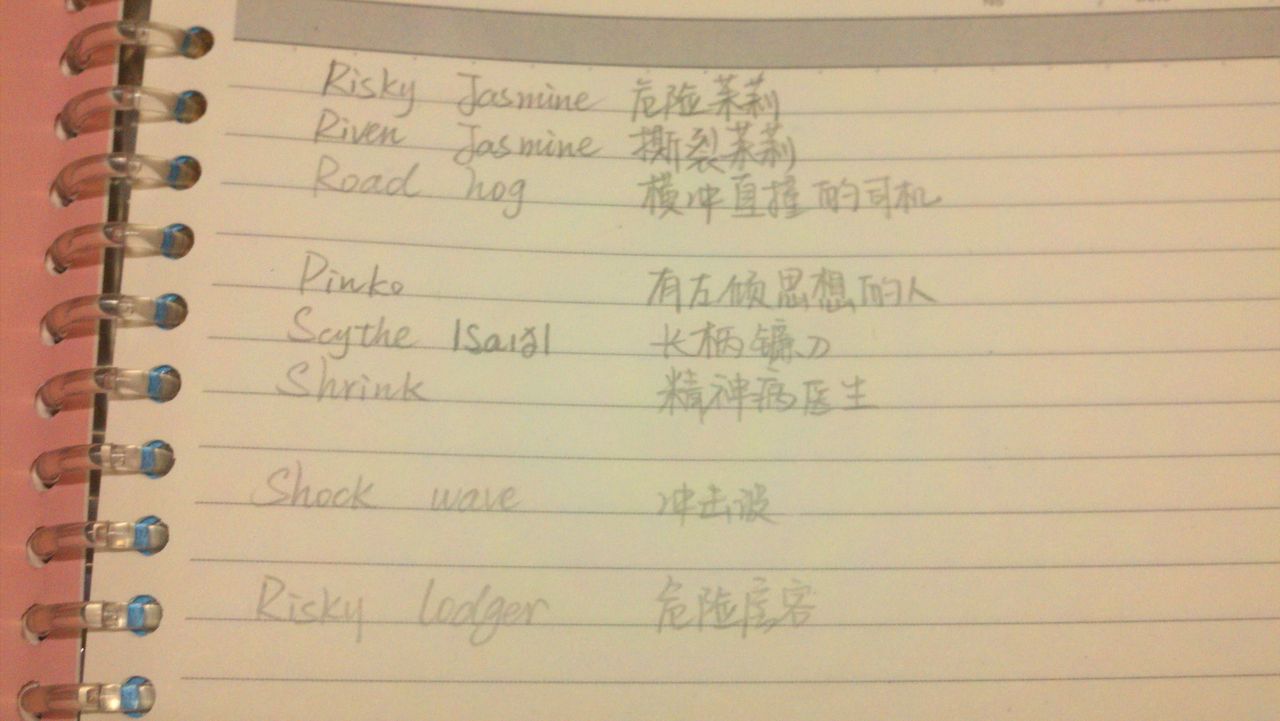 Risky Jasmine 危险茉莉
Riven Jasmine 撕裂茉莉
Road hog 横冲直撞的司机
Pinko 有左倾思想的人
Scythe 长柄镰刀
Shrink 精神病医生
Shock wave 冲击波
Risky lodger 危险房客